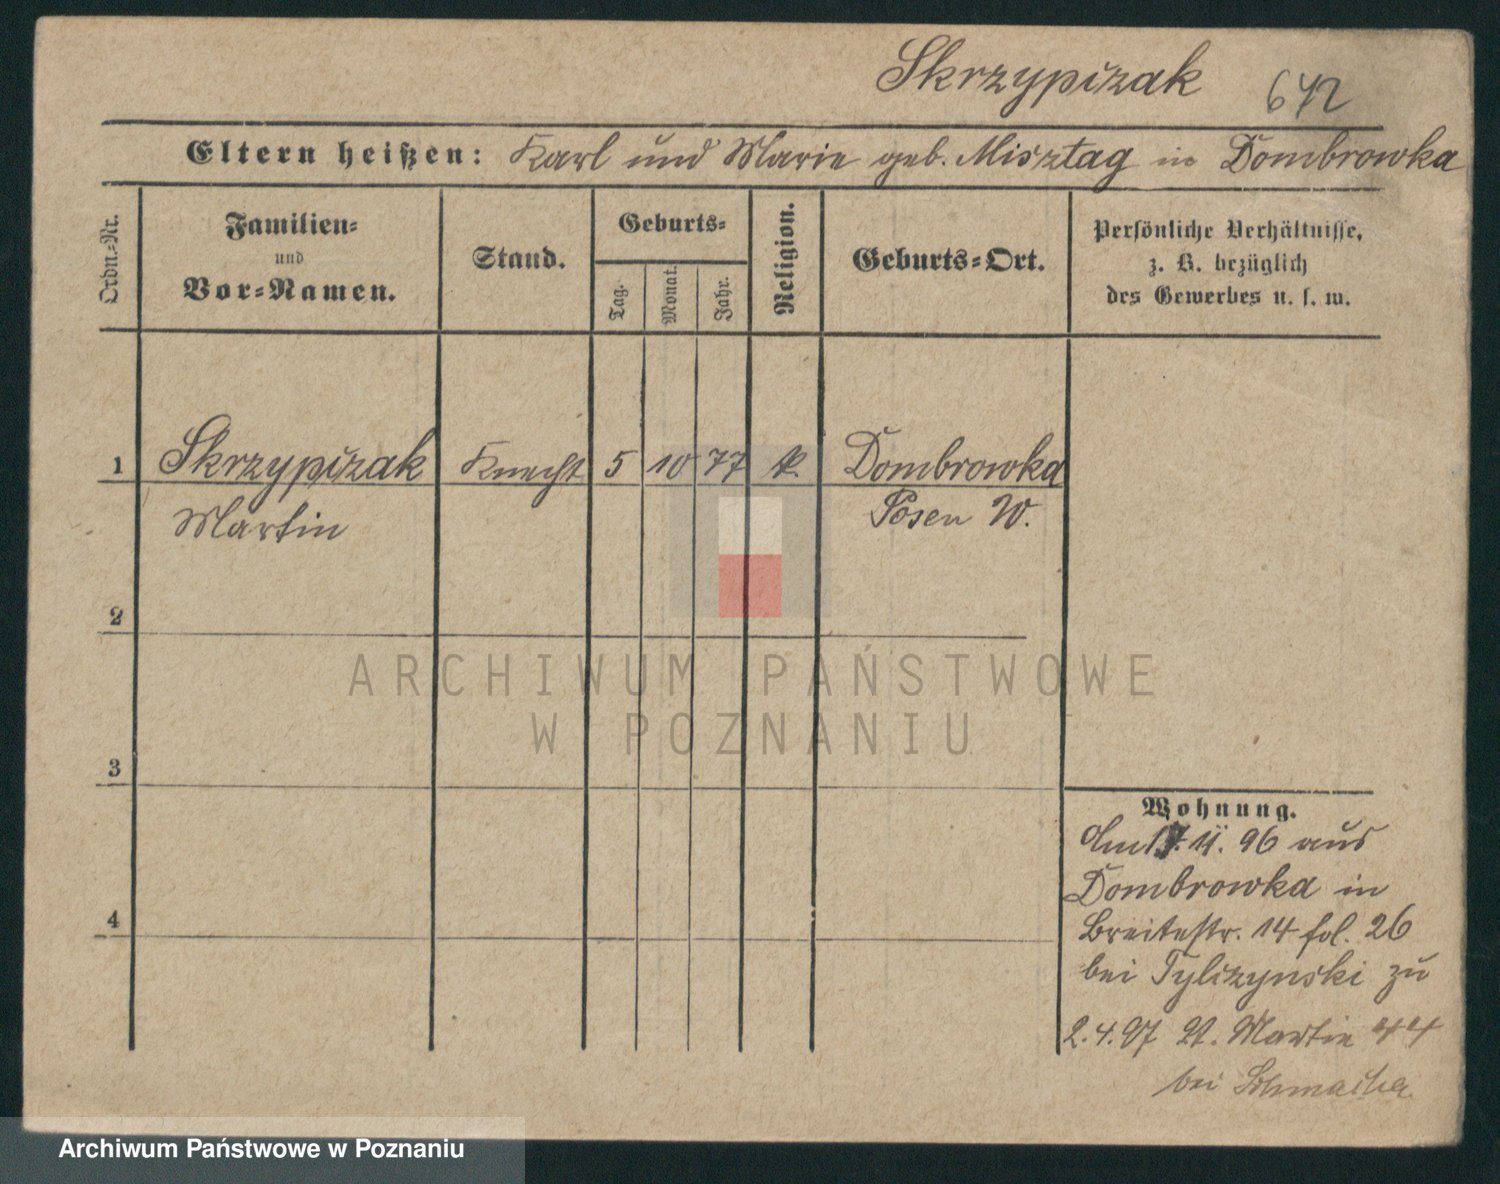 Skrzypczak 642
Eltern heißen: Karl und Marie geb. Misztag in Dombrowka
Ordn.-Nr.
Familien- und Vor-Namen.
Stand.
Geburts-
Tag.
Monat.
Jahr.
Religion.
Geburts-Ort.
Persönliche Verhältnisse,
z. B. bezüglich
des Gewerbes u. s. w.
1 Skrzypczak Knecht 5 10 77 k. Dombrowka
Martin Posen W.
2
3
4
Wohnung.
Am 17. 11. 96 aus
Dombrowka in
Breitestr. 14 fol. 26
bei Tylczynski zu
2. 4. 97 St. Martin 44
bei
ARCHIWUM PAŃSTWOWE
W POZNANIU
Archiwum Państwowe w Poznaniu